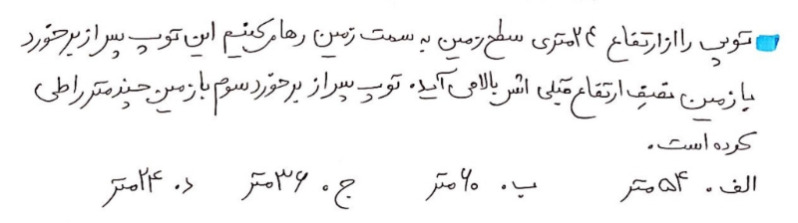 توپی را از ارتفاع ۲۴ متری سطح زمین به سمت زمین رها می‌کنیم این توپ پس از برخورد
با زمین نصف ارتفاع قبلی اش بالا می آید. توپ پس از برخورد سوم با زمین چند متر را طی
کرده است.
الف. ۵۴ متر ب. ۶۰ متر ج. ۳۶ متر د. ۲۴ متر